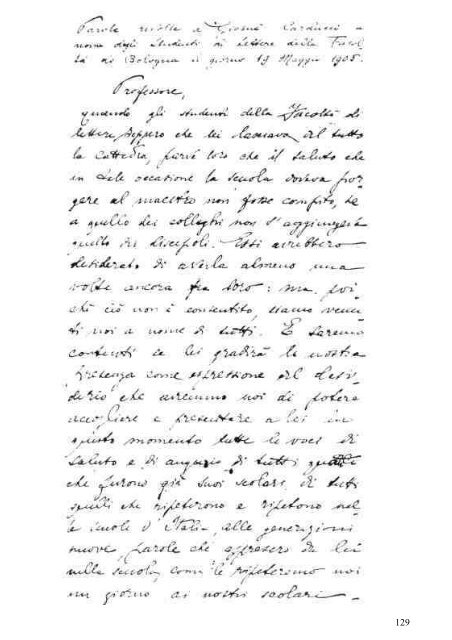 Parole rivolte a Giosuè Carducci a
nome degli studenti di Lettere della Facol-
tà di Bologna il giorno 19 Maggio 1905.
Professore,
quando gli studenti della Facoltà di
lettere seppero che lei lasciava del tutto
la cattedra, parve loro che il saluto che
in tale occasione la scuola doveva por-
gere al maestro non fosse compito, se
a quello dei colleghi non s'aggiungeva
quello dei discepoli. Essi avrebbero
desiderato di averla almeno una
volta ancora fra loro: ma poi-
chè ciò non è consentito, siamo venu-
ti noi a nome di tutti. E saremo
contenti se lei gradirà la nostra
presenza come espressione del desi-
derio che avremmo noi di potere
accogliere e presentare a lei in
questo momento tutte le voci di
saluto e di augurio di tutti quelli
che furono già suoi scolari, di tutti
quelli che ripeterono e ripetono nel-
le scuole d'Italia, alle generazioni
nuove, parole che appresero da lei
nella scuola, come le ripeteremo noi
un giorno ai nostri scolari.
129